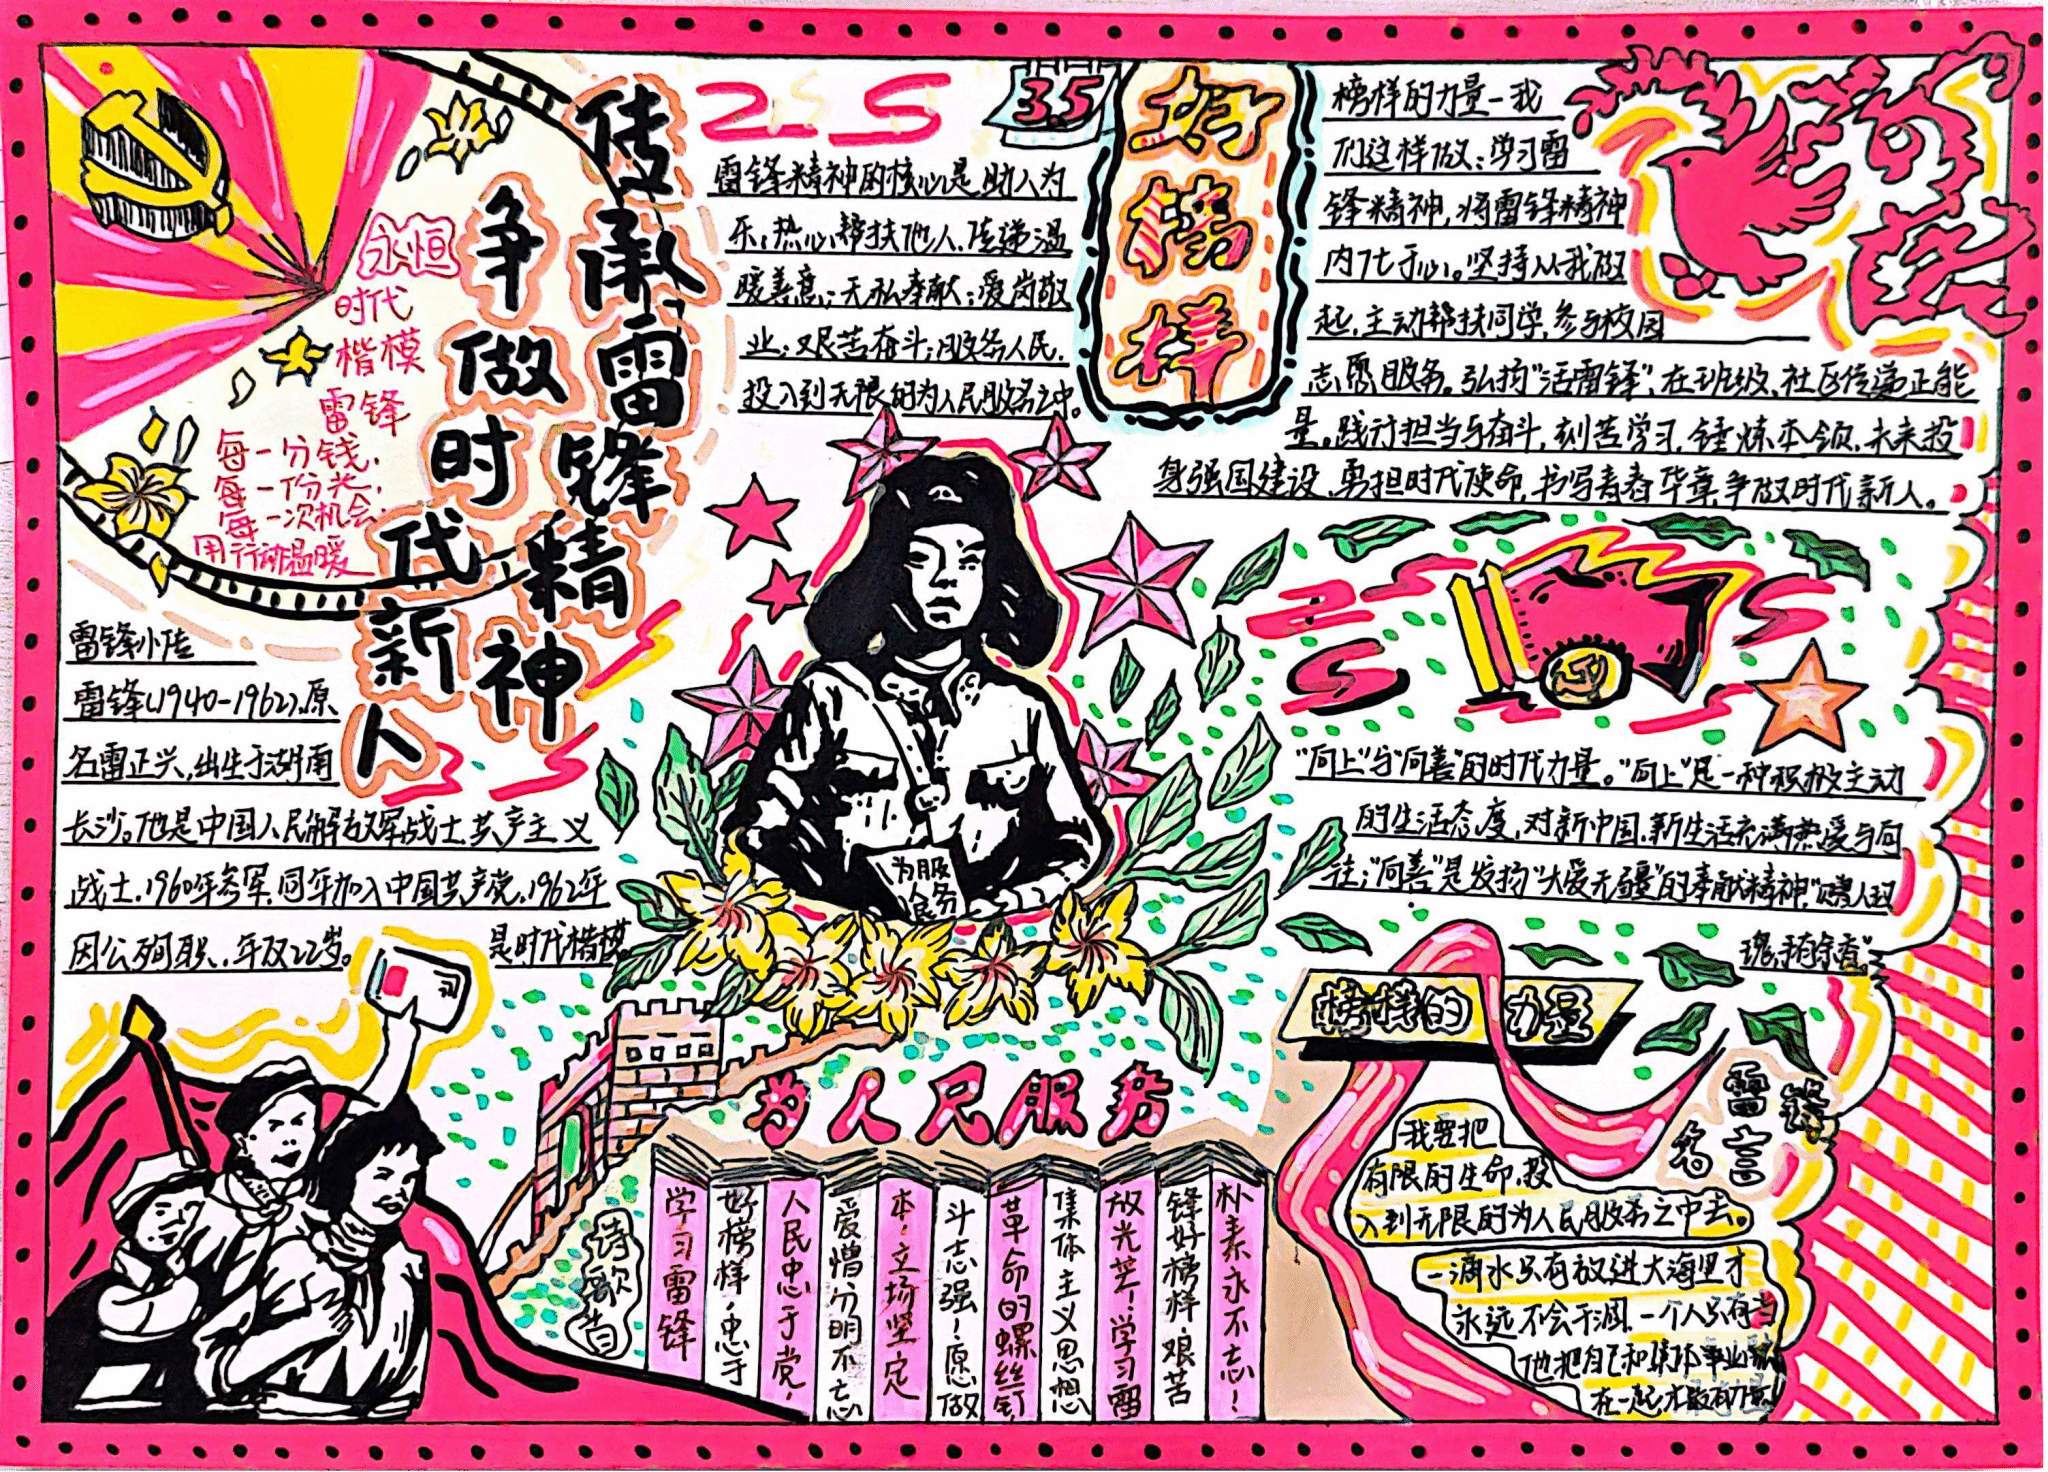 传承雷锋精神
争做时代新人
永恒
时代
楷模
雷锋
每一分钱，
每一份光，
每一次机会
用行动温暖
雷锋小传
雷锋（1940-1962），原
名雷正兴，出生于湖南
长沙。他是中国人民解放军战士共产主义
战士，1960年参军，同年加入中国共产党，1962年
因公殉职，年仅22岁。
是时代楷模。
3.5
雷锋精神的核心是助人为
乐；热心帮扶他人，传递温
暖善意；无私奉献；爱岗敬
业；艰苦奋斗；服务人民，
投入到无限的为人民服务之中。
好榜样
榜样的力量-我
们这样做：学习雷
锋精神，将雷锋精神
内化于心。坚持从我做
起，主动帮扶同学，参与校园
志愿服务。弘扬“活雷锋”，在班级、社区传递正能
量。践行担当与奋斗，刻苦学习，锤炼本领，未来投
身强国建设，勇担时代使命，书写青春华章，争做时代新人。
“向上”与“向善”的时代力量。“向上”是一种积极主动
的生活态度，对新中国、新生活充满热爱与向
往；“向善”是发扬“大爱无疆”的奉献精神，“赠人玫
瑰，手有余香”。
为服
人务
民
为人民服务
榜样的力量
雷锋
名言
我要把
有限的生命，投
入到无限的为人民服务之中去。
一滴水只有放进大海里才
永远不会干涸，一个人只有当
他把自己和集体事业融
在一起才最有力量！
诗歌者
学习雷锋
好榜样，忠于
人民忠于党，
爱憎分明不忘
本，立场坚定
斗志强！愿做
革命的螺丝钉
集体主义思想
放光芒！学习雷
锋好榜样，艰苦
朴素永不忘！